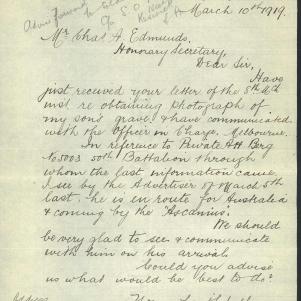 March 10th 1919.
Mr Chas A. Edmunds,
Honorary Secretary.
Dear Sir,
Have
just received your letter of the 8th
inst re obtaining photograph of
my son's grave & have communicated
with the Officer in Charge. Melbourne.
In reference to Private
50th Battalion through
whom the last information came
I see by the Advertiser of March 5th
last. he is en route for Australia
& coming by the "Ascanius".
We should
be very glad to see & communicate
with him on his arrival
Could you advise
us what would be best to do?